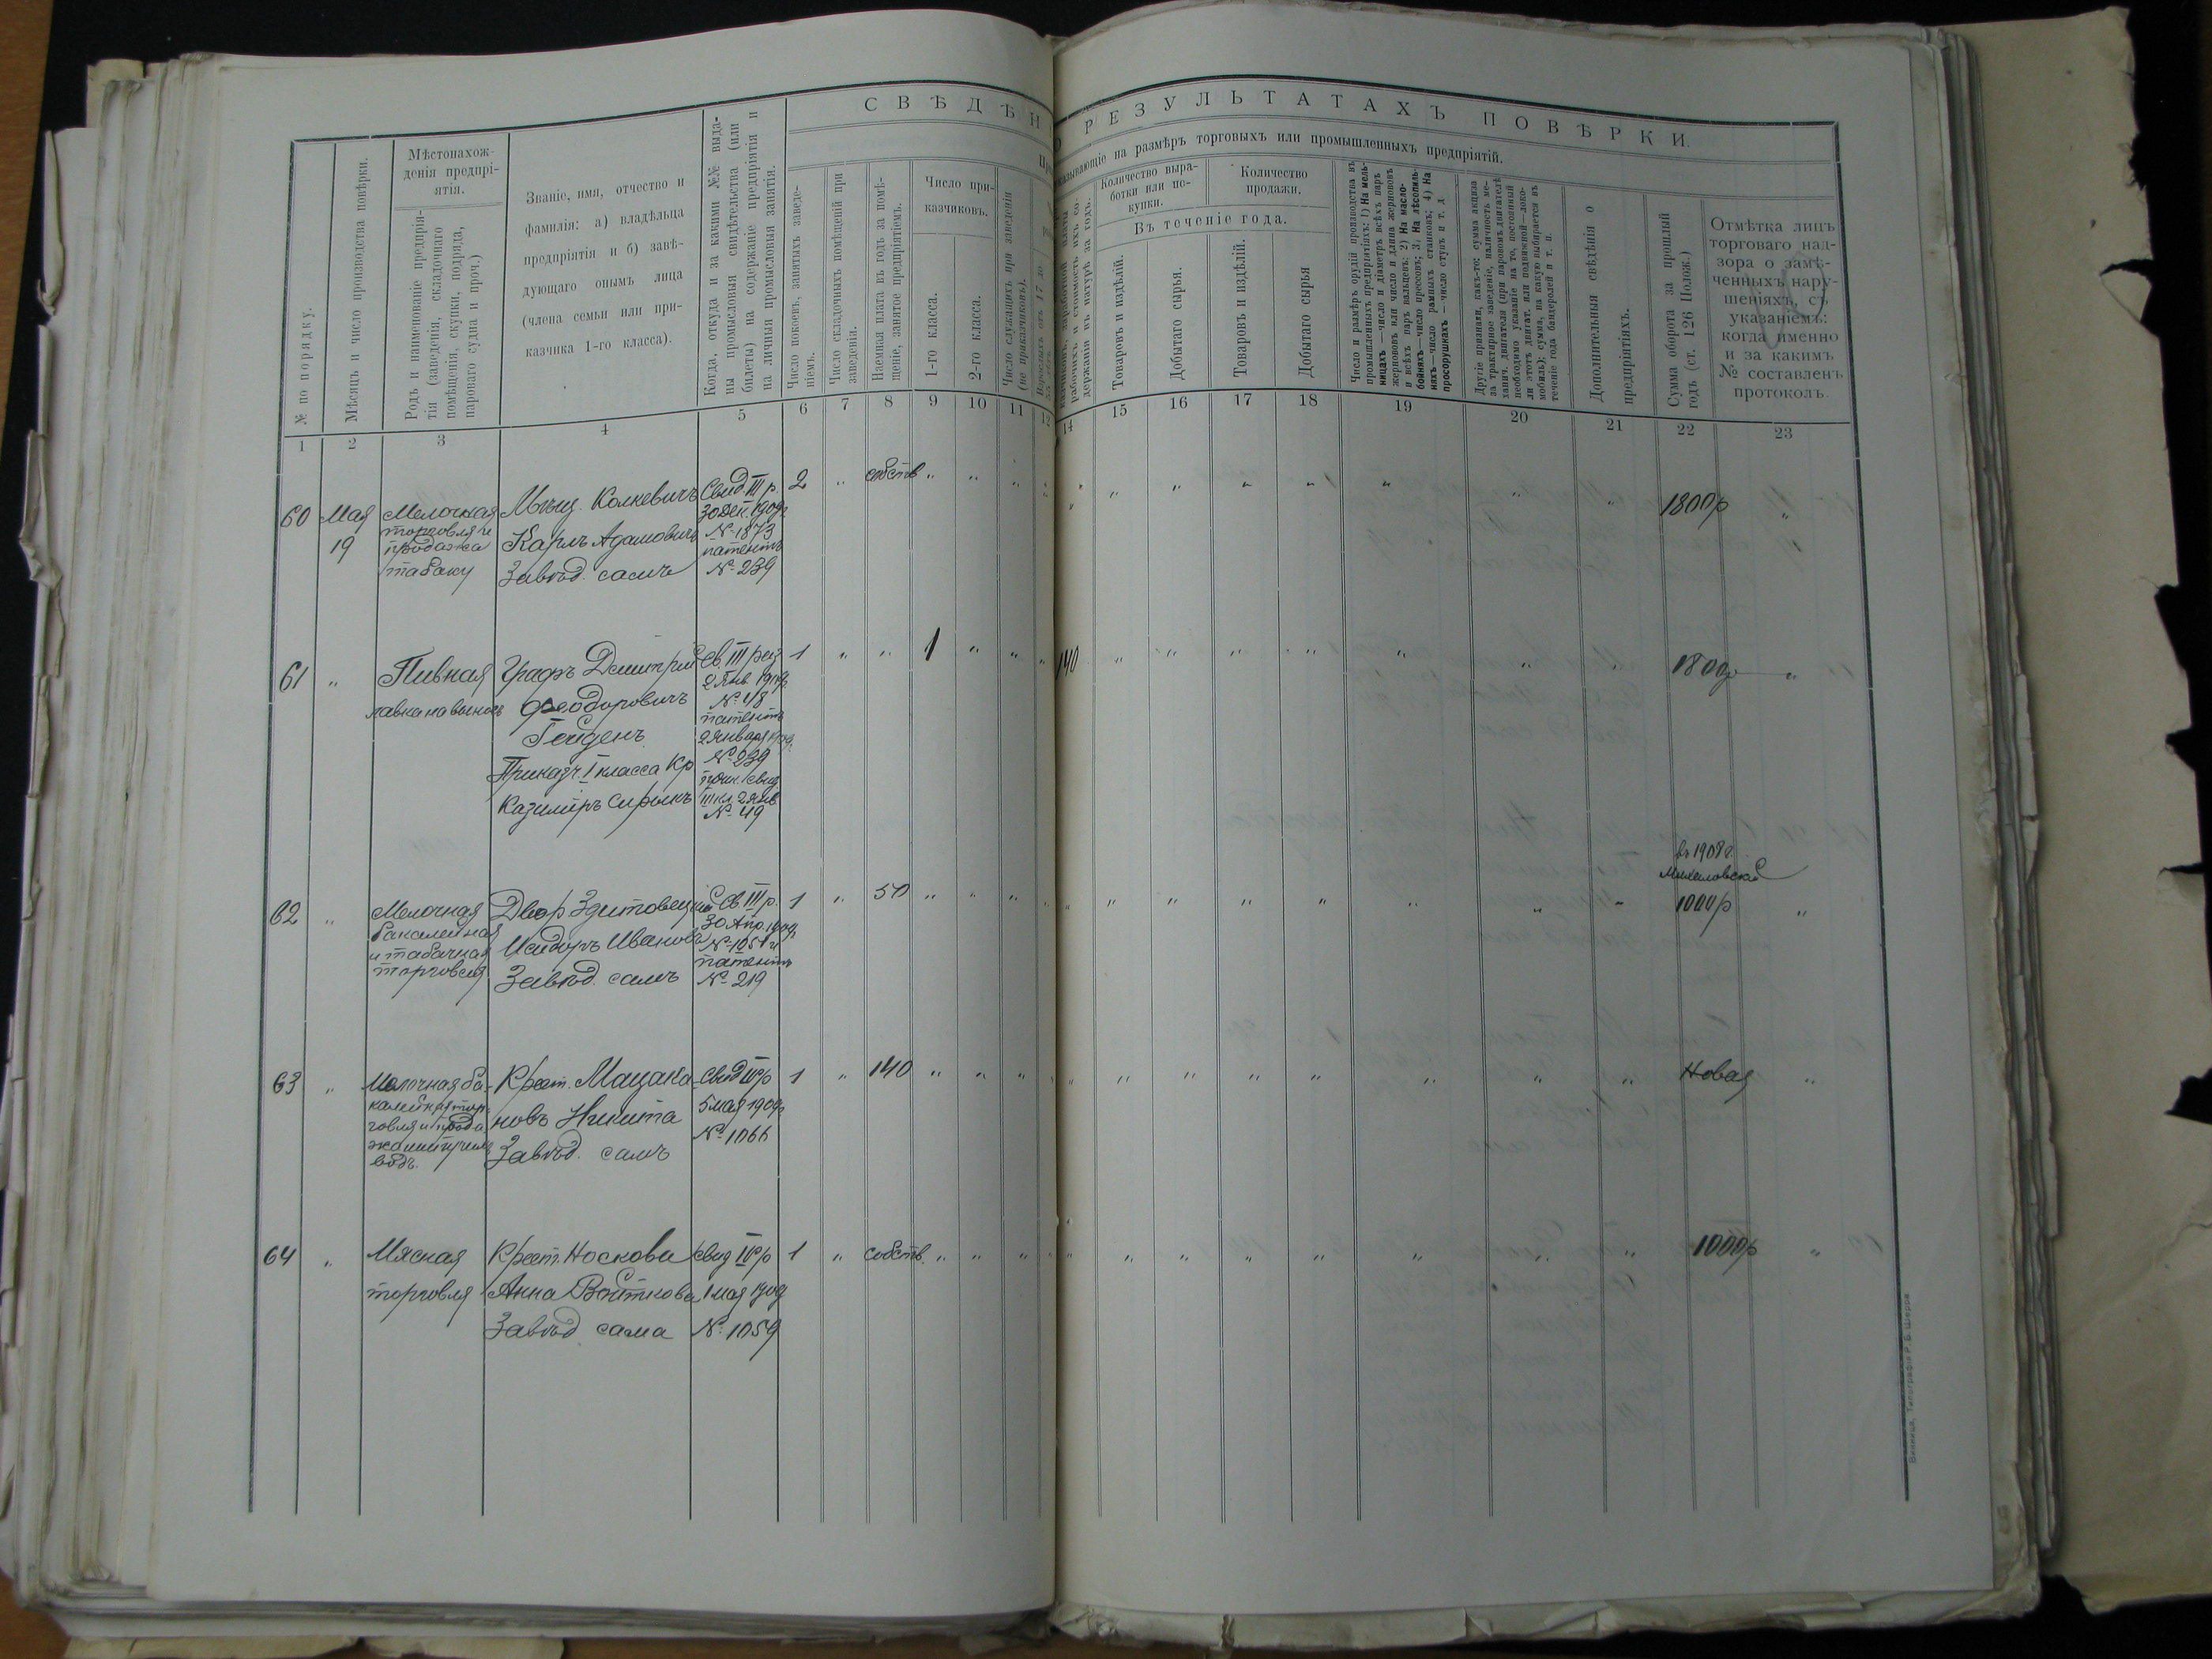 СВѢДѢН
О РЕЗУЛЬТАТАХЪ ПОВѢРКИ.
указывающіе на размѣръ торговыхъ или промышленныхъ предпріятій.
№ по порядку.
Мѣсяцъ и число производства повѣрки.
Мѣстонахож-
денія предпрі-
ятія.
Родъ и наименованіе предпрія-
тія (заведенія, складочнаго
помѣщенія, скупки, подряда,
пароваго судна и проч.)
Званіе, имя, отчество и
фамилія: а) владѣльца
предпріятія и б) завѣ-
дующаго онымъ лица
(члена семьи или при-
казчика 1-го класса).
Когда, откуда и за какими №№ выда-
ны промысловыя свидѣтельства (или
билеты) на содержаніе предпріятія и
на личныя промысловыя занятія.
Число покоевъ, занятыхъ заведе-
ніемъ.
Число складочныхъ помѣщеній при
заведеніи.
Наемная плата въ годъ за помѣ-
щеніе, занятое предпріятіемъ.
Число при-
казчиковъ.
1-го класса.
2-го класса.
Число служащихъ при заведеніи
(не приказчиковъ).
Взрослыхъ отъ 17 до
рабочихъ и стоимость ихъ со-
держанія въ натурѣ за годъ.
Количество выра-
ботки или по-
купки.
Количество
продажи.
Въ теченіе года.
Товаровъ и издѣлій.
Добытаго сырья.
Товаровъ и издѣлій.
Добытаго сырья
Число и размѣръ орудій производства въ
промышленныхъ предпріятіяхъ: 1) На мель-
ницахъ—число и діаметръ всѣхъ паръ
жернововъ или число и длина жернововъ
и всѣхъ паръ вальцевъ; 2) На масло-
бойняхъ—число прессовъ; 3) На лѣсопиль-
няхъ—число рамныхъ станковъ; 4) На
просорушкахъ—число ступъ и т. д.
Другіе признаки, какъ-то: сумма акциза
за трактирное заведеніе, наличность ме-
ханич. двигателя (при паровомъ двигателѣ
необходимо указаніе на то, постоянный
ли этотъ двигат. или подвижной—локо-
мобиль); сумма, на какую выбирается въ
теченіе года бандеролей и т. п.
Дополнительныя свѣдѣнія о
предпріятіяхъ.
Сумма оборота за прошлый
годъ (ст. 126 Полож.)
Отмѣтка лицъ
торговаго над-
зора о замѣ-
ченныхъ нару-
шеніяхъ, съ
указаніемъ:
когда именно
и за какимъ
№ составленъ
протоколъ.
1 2 3 4 5 6 7 8 9 10 11 12 14 15 16 17 18 19 20 21 22 23
60 Мая Мелочная Мѣщ. Колкевичъ Свид III р. 2 " собств " " " " " " " " " " " 1800р "
19 торговля и Карлъ Адамовичъ 30 Дек. 1909г
продажа Завѣд. самъ № 1873
табаку патентъ
№ 239
61 " Пивная Графъ Дмитрій Св. III раз 1 " " 1 " " " 140 " " " " " " " 1800р "
лавка на выносъ Феодоровичъ 2 Янв.
Гейденъ № 48
Приказч. I класса Кр патентъ
Казиміръ 2 января
№ 239
III кл. 2 янв
№ 49
въ 1908г.
62 " Мелочная Двор. Здитовецкій Св. III р. 1 " 50 " " " " " " " " " " " 1000р "
бакалейная Исидоръ Иванов 30 Апр. 1909
и табачная Завѣд. самъ № 1051 и
торговля патентъ
№ 219
63 " Мелочная ба- Крест. Мацака- Свид IV р 1 " 140 " " " " " " " " " " " Новая "
калейная тор- новъ Никита 5 мая 1909г
говля и прода Завѣд. самъ № 1066
водъ.
64 " Мясная Крест. Носкова Свид IV р 1 " собств. " " " " " " " " " " " 1000р "
торговля Анна Войткова 1 мая 1909
Завѣд сама № 1059
Винница, Типографія Р. Б. Шерра